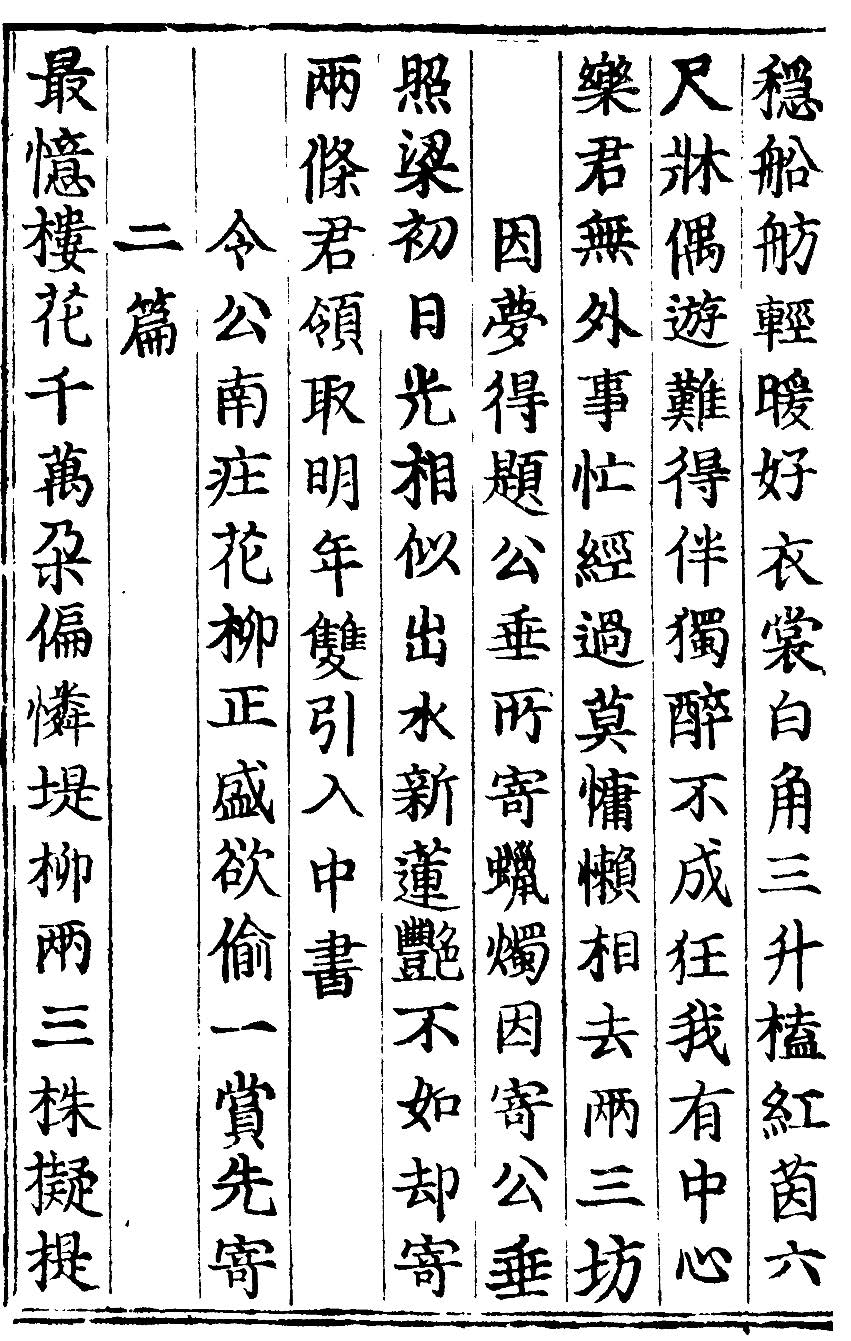 穩船舫輕暖好衣裳白角三升榼紅茵六
尺牀偶遊難得伴獨醉不成狂我有中心
樂君無外事忙經過莫慵懶相去兩三坊
因夢得題公垂所寄蠟燭因寄公垂
照梁初日光相似出水新蓮艷不如却寄
兩條君領取明年雙引入中書
令公南庄花柳正盛欲偷一賞先寄
二篇
最憶樓花千萬朶偏憐堤柳兩三株擬提